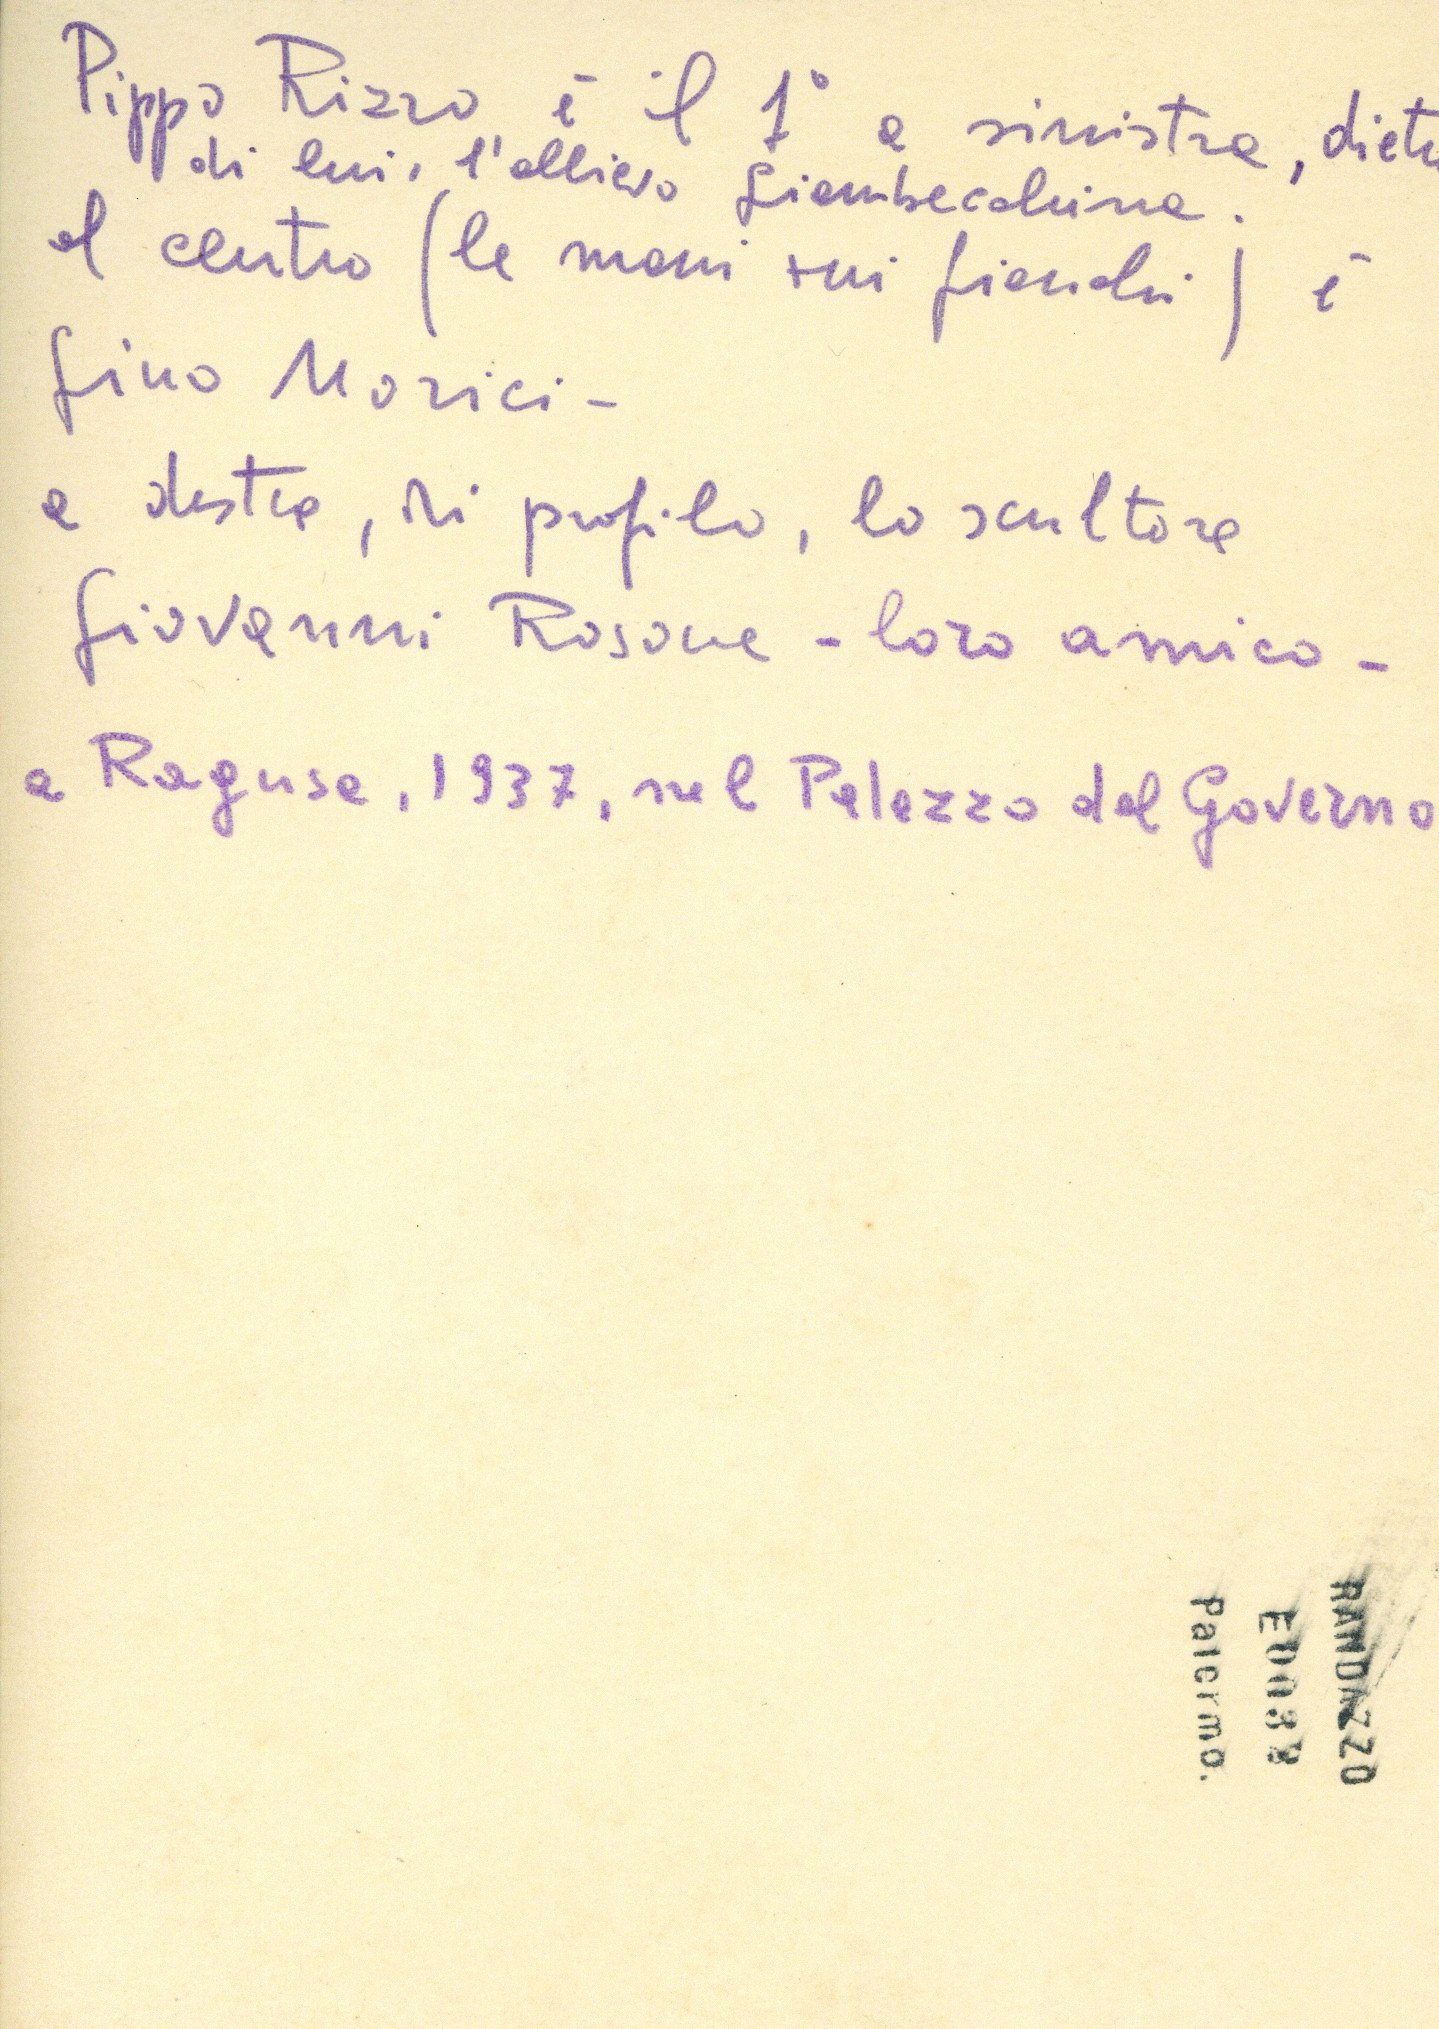 Pippo Rizzo è il 1° a sinistra, dietro
di lui, l'allievo Giambecchina.
al centro (le mani sui fianchi) è
Gino Morici -
a destra, di profilo, lo scultore
Giovanni Rosone - loro amico -
a Ragusa, 1937, nel Palazzo del Governo
RANDAZZO
Palermo.